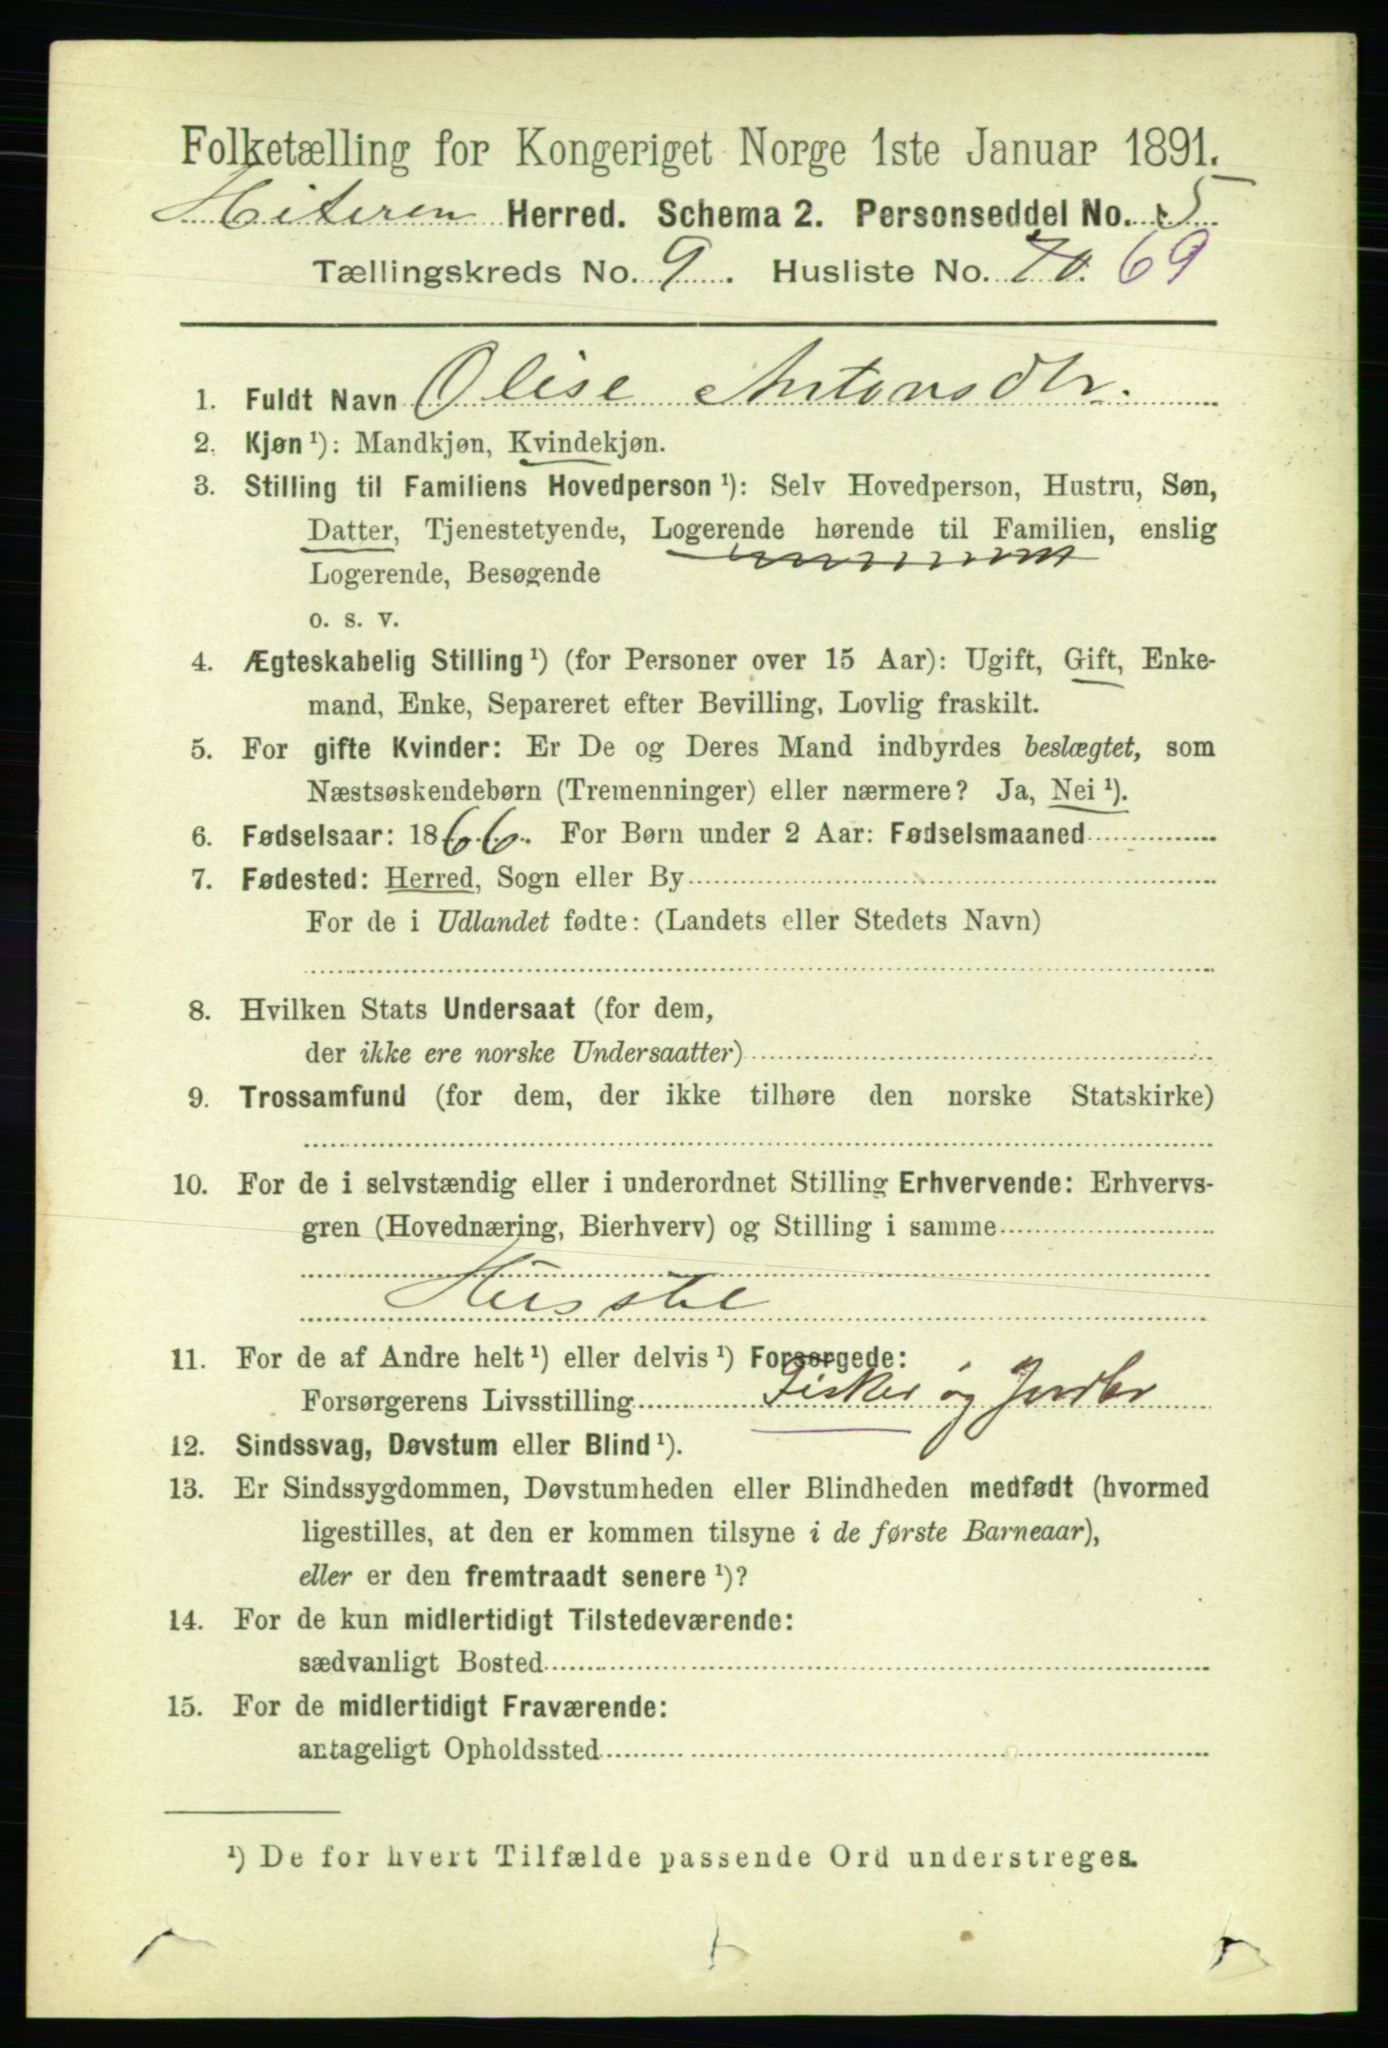 Folketælling for Kongeriget Norge 1ste Januar 1891.
Hiteren Herred. Schema 2. Personseddel No. 5
Tællingskreds No. 9. Husliste No. 70. 69
1. Fuldt Navn Olise Antonsdtr.
2. Kjøn ¹): Mandkjøn, Kvindekjøn.
3. Stilling til Familiens Hovedperson ¹): Selv Hovedperson, Hustru, Søn,
Datter, Tjenestetyende, Logerende hørende til Familien, enslig
Logerende, Besøgende
o. s. v.
4. Ægteskabelig Stilling ¹) (for Personer over 15 Aar): Ugift, Gift, Enke-
mand, Enke, Separeret efter Bevilling, Lovlig fraskilt.
5. For gifte Kvinder: Er De og Deres Mand indbyrdes beslægtet, som
Næstsøskendebørn (Tremenninger) eller nærmere? Ja, Nei ¹).
6. Fødselsaar: 1866. For Børn under 2 Aar: Fødselsmaaned
7. Fødested: Herred, Sogn eller By
For de i Udlandet fødte: (Landets eller Stedets Navn)
8. Hvilken Stats Undersaat (for dem,
der ikke ere norske Undersaatter)
9. Trossamfund (for dem, der ikke tilhøre den norske Statskirke)
10. For de i selvstændig eller i underordnet Stilling Erhvervende: Erhvervs-
gren (Hovednæring, Bierhverv) og Stilling i samme
Husstel
11. For de af Andre helt ¹) eller delvis ¹) Forsørgede:
Forsørgerens Livsstilling Fisker og Jordbr
12. Sindssvag, Døvstum eller Blind ¹).
13. Er Sindssygdommen, Døvstumheden eller Blindheden medfødt (hvormed
ligestilles, at den er kommen tilsyne i de første Barneaar),
eller er den fremtraadt senere ¹)?
14. For de kun midlertidigt Tilstedeværende:
sædvanligt Bosted
15. For de midlertidigt Fraværende:
antageligt Opholdssted
¹) De for hvert Tilfælde passende Ord understreges.